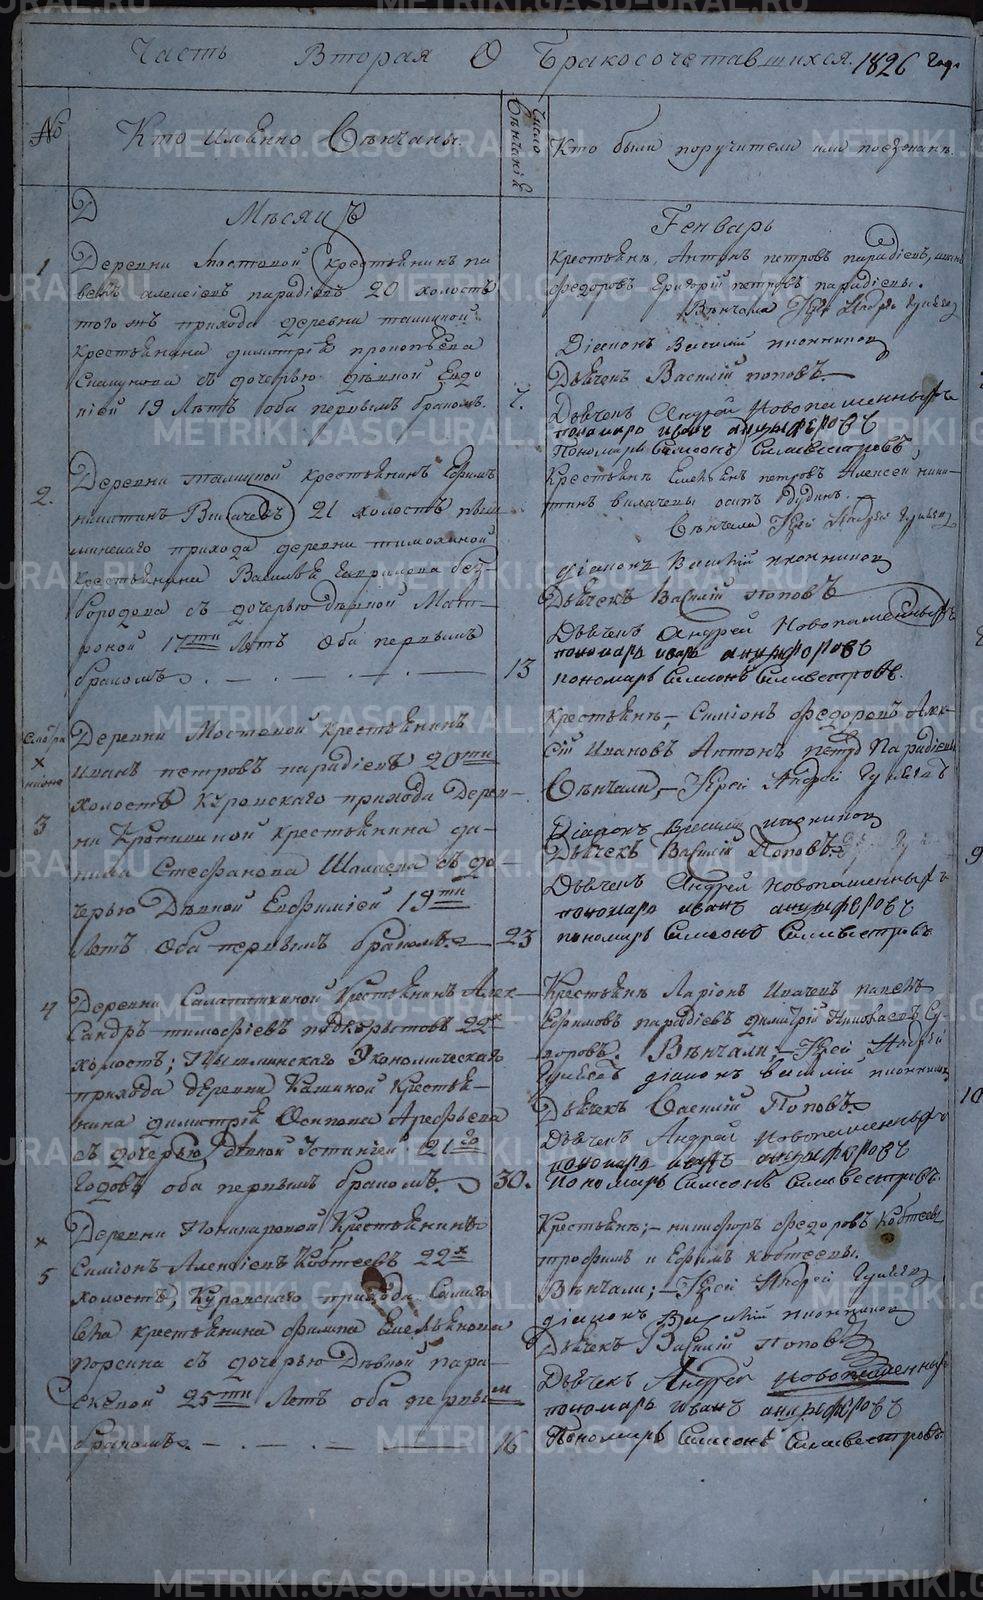 Часть Вторая О Бракосочетавшихся 1826 Года
№
Кто именно Вѣнчаны
Число Вѣнчанiй
Кто были поручители или поезжанѣ
Мѣсяцъ Генварь
1
Деревни Мостовой крестьянинъ па
велъ алексiевъ парадiевъ 20 холостъ
того жъ прихода деревни талицкой
крестьянина димитрiя прокопьева
съ дочерью дѣвкой Евдо
кiей 19 Лѣтъ оба первымъ бракомъ.
7.
крестьянѣ, Антонъ петровъ парадiевъ,
федоровъ Григорiй петровъ парадiевы.
Вѣнчали Iерей Андрей
Дiаконъ Василiй иконников
Дьячекъ Василiй поповъ
Дьячекъ Андрей Новопашенныхъ
пономарь иванъ анцыферовъ
Пономарь Симеонъ Силивестровъ
2.
Деревни талицкой крестьянинъ Ефимъ
никитинъ 21 холостъ пыш
минскаго прихода деревни тимохиной
крестьянина Василья без
бородова съ дочерью дѣвкой Мат
роной 17ти Лѣтъ Оба первымъ
бракомъ
13
Крестьянѣ Емельянъ петровъ Алексей ники
тинъ осипъ Дудинъ.
Вѣнчали Iерей Андрей
дiаконъ Василiй иконников
Дьячекъ Василiй поповъ
Дьячекъ Андрей Новопашенныхъ
пономарь иванъ анцыферовъ
пономарь Симеонъ Силивестровъ.
3
Деревни Мостовой крестьянинъ
иванъ петровъ парадiевъ 20ти
холостъ Куровскаго прихода Дерев
ни крестьянина да
нила Стефанова съ до
черью Дѣвкой Евфимiей 19ти
Лѣтъ Оба первымъ бракомъ
23
Крестьянѣ, Симiонъ федоровъ Алек
сiй Ивановъ Антонъ петро Парадiевы
Вѣнчали, Iерей Андрей
Дiаконъ Василiй иконников
Дьячекъ Василiй Поповъ
Дьячекъ Андрей Новопашенныхъ
пономарь иванъ анцыферовъ
пономарь Симеонъ Силивестровъ
4
Деревни Крестьянинъ Алек
сандръ тимофiевъ подкорытовъ 22х
холостъ; Экономическаго
прихода деревни Кашиной Крестья
нина димитрiя Осипова Арефьева
съ дочерью дѣвкой Устинiей 21го
Годовъ оба первымъ бракомъ.
30.
Крестьянѣ Ларiонъ павелъ
Ефимовъ парадiевъ димитрiй Николаевъ Су
доровъ. Вѣнчали, Iерей Андрей
дiаконъ василiй иконников
Дьячекъ Василiй Поповъ
Дьячекъ Андрей Новопашенныхъ
пономарь иванъ анцыферовъ
Пономарь Симеонъ Силивестровъ.
х
5
Деревни Крестьянинъ
Симiонъ Алексiевъ Коптеевъ 22х
холостъ; Куровскаго прихода Самаго
села крестьянина филипа Емельянова
порсина съ дочерью Дѣвкой пара
скевой 25ти Лѣтъ оба первым
бракомъ.
16
Крестьянѣ; никифоръ федоровъ Коптеевъ
трофимъ и Ефимъ коптеевы.
Вѣнчали; Iерей Андрей
дiаконъ Василiй иконников
Дьячекъ Василiй поповъ
Дьячекъ Андрей новопашенныхъ
пономарь иванъ анцыферовъ
Пономарь Симеонъ Силивестровъ.
METRIKI.GASO-URAL.RU